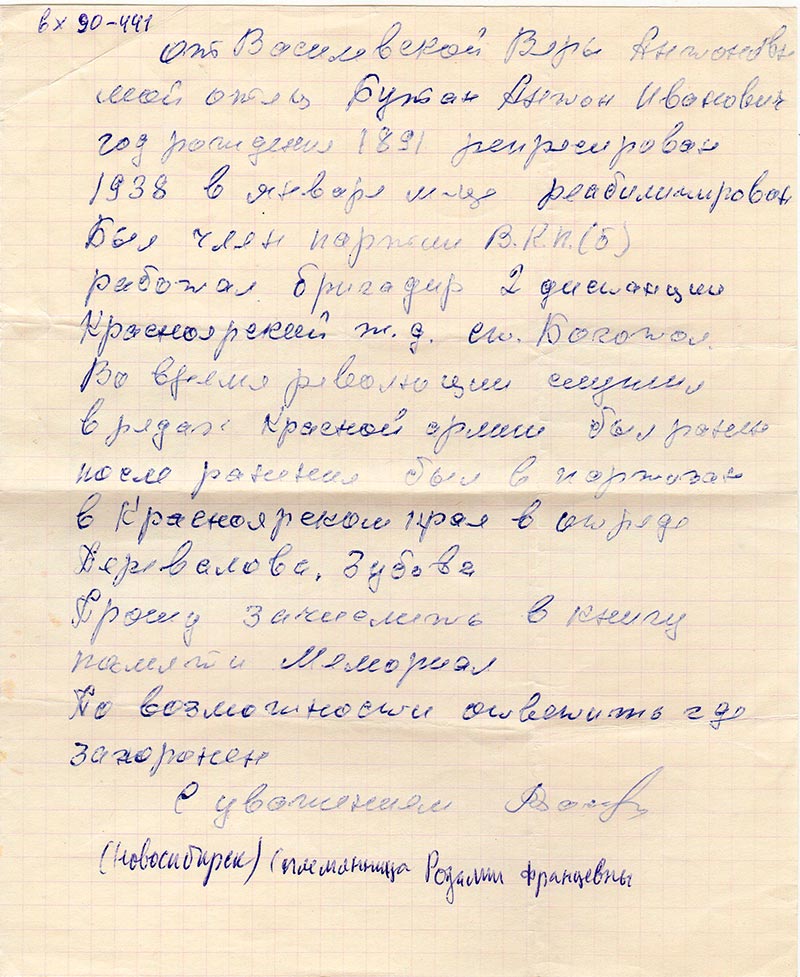 вх 90-441
от Василевской Веры Антоновны
мой отец Бутан Антон Иванович
год рождения 1891 репресирован
1938 в января м-це реабилитирован
Был член партии В.К.П.(б)
работал бригадир 2 дистанции
Красноярский ж.д. ст. Боготол.
Во время революции служил
в рядах Красной армии был ранен
после ранения был в партизан
в Красноярском края в отряде
Перевалова, Зубова
Прошу зачислить в книгу
памяти Мемориал
По возможности ответить где
захоронен
С уважением
(Новосибирск) (племянница Розалии Францевны